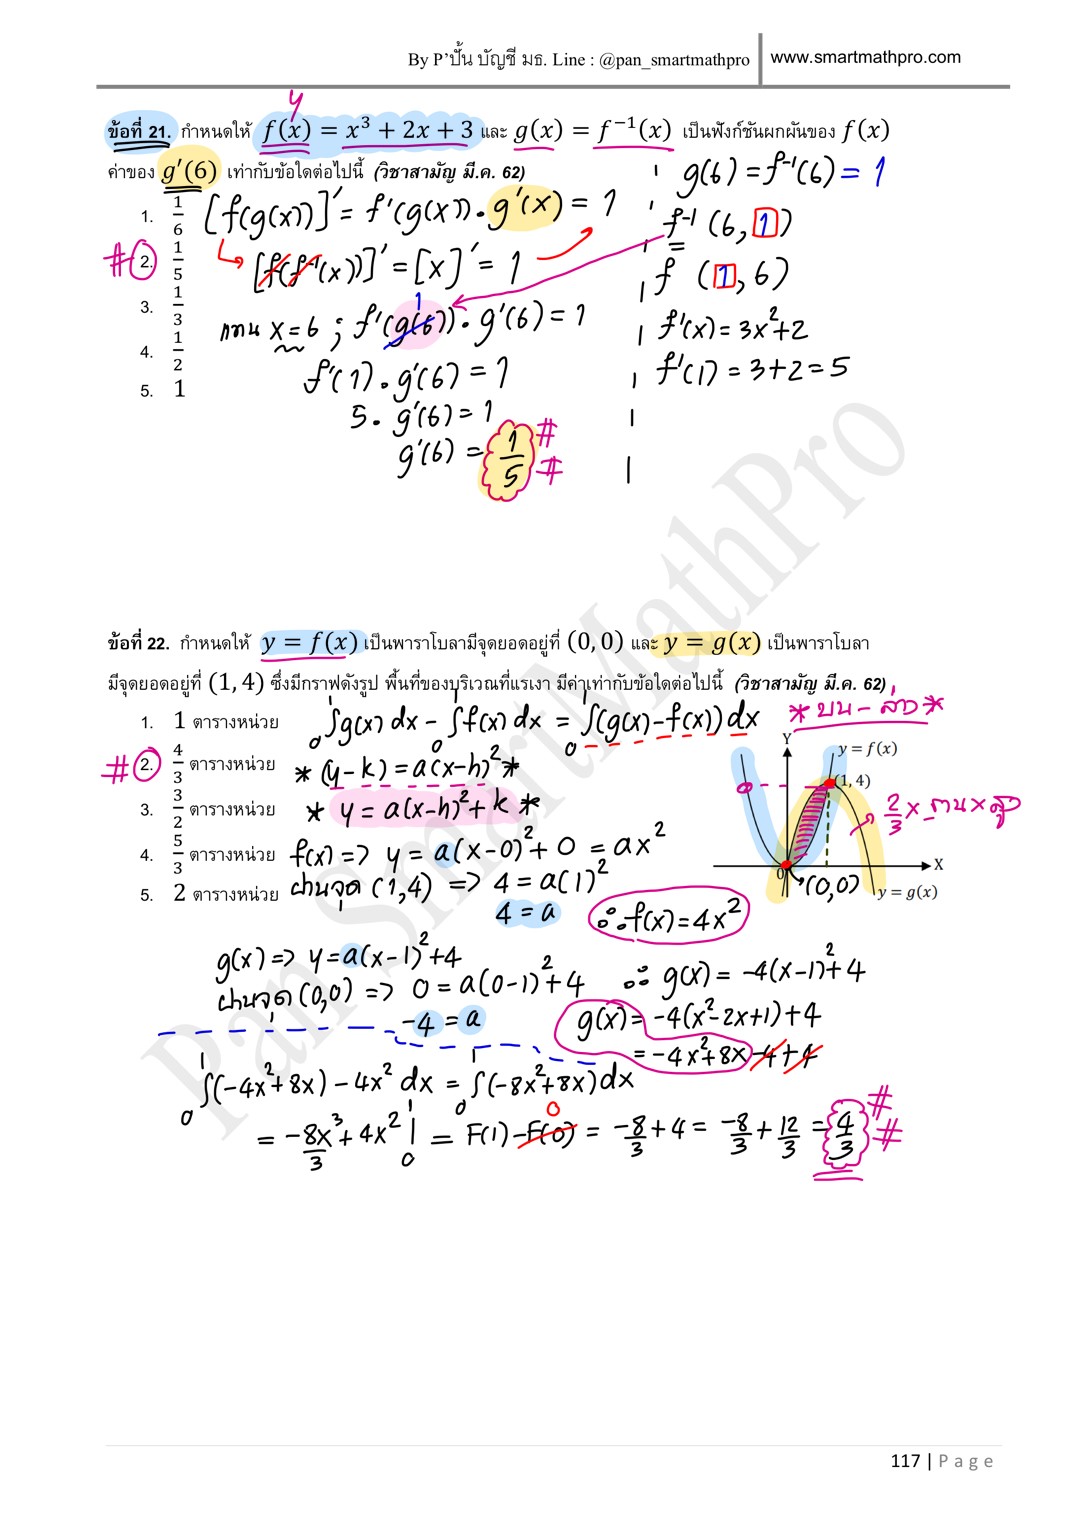 By P'ปั้น บัญชี มธ. Line : @pan_smartmathpro
www.smartmathpro.com
y
ข้อที่ 21. กำหนดให้ f(x) = x³ + 2x + 3 และ g(x) = f⁻¹(x) เป็นฟังก์ชันผกผันของ f(x)
ค่าของ g′(6) เท่ากับข้อใดต่อไปนี้ (วิชาสามัญ มี.ค. 62)
g(6) = f⁻¹(6) = 1
1. 1/6
[f(g(x))]′ = f′(g(x)) · g′(x) = 1
f⁻¹ (6, 1)
# 2. 1/5
[f(f⁻¹(x))]′ = [x]′ = 1
=
f (1, 6)
3. 1/3
แทน x = 6 ; f′(g(6)) · g′(6) = 1
1
f′(x) = 3x² + 2
4. 1/2
f′(1) · g′(6) = 1
f′(1) = 3 + 2 = 5
5. 1
5 · g′(6) = 1
g′(6) = 1/5 # #
ข้อที่ 22. กำหนดให้ y = f(x) เป็นพาราโบลามีจุดยอดอยู่ที่ (0, 0) และ y = g(x) เป็นพาราโบลา
มีจุดยอดอยู่ที่ (1, 4) ซึ่งมีกราฟดังรูป พื้นที่ของบริเวณที่แรเงา มีค่าเท่ากับข้อใดต่อไปนี้ (วิชาสามัญ มี.ค. 62)
1. 1 ตารางหน่วย
₀∫¹ g(x) dx − ₀∫¹ f(x) dx = ₀∫¹ (g(x) − f(x)) dx
* บน - ล่าง *
# 2. 4/3 ตารางหน่วย
* (y − k) = a(x − h)² *
3. 3/2 ตารางหน่วย
* y = a(x − h)² + k *
4. 5/3 ตารางหน่วย
f(x) => y = a(x − 0)² + 0 = ax²
5. 2 ตารางหน่วย
ผ่านจุด (1,4) => 4 = a(1)²
4 = a
∴ f(x) = 4x²
Y
y = f(x)
(1, 4)
2/3 × ฐาน × สูง
X
0
(0,0)
y = g(x)
g(x) => y = a(x − 1)² + 4
∴ g(x) = −4(x − 1)² + 4
ผ่านจุด (0,0) => 0 = a(0 − 1)² + 4
g(x) = −4(x² − 2x + 1) + 4
−4 = a
= −4x² + 8x − 4 + 4
₀∫¹ (−4x² + 8x) − 4x² dx = ₀∫¹ (−8x² + 8x) dx
= −8x³/3 + 4x² |₀¹ = F(1) − F(0) = −8/3 + 4 = −8/3 + 12/3 = 4/3 # #
0
Pan SmartMathPro
117 | Page